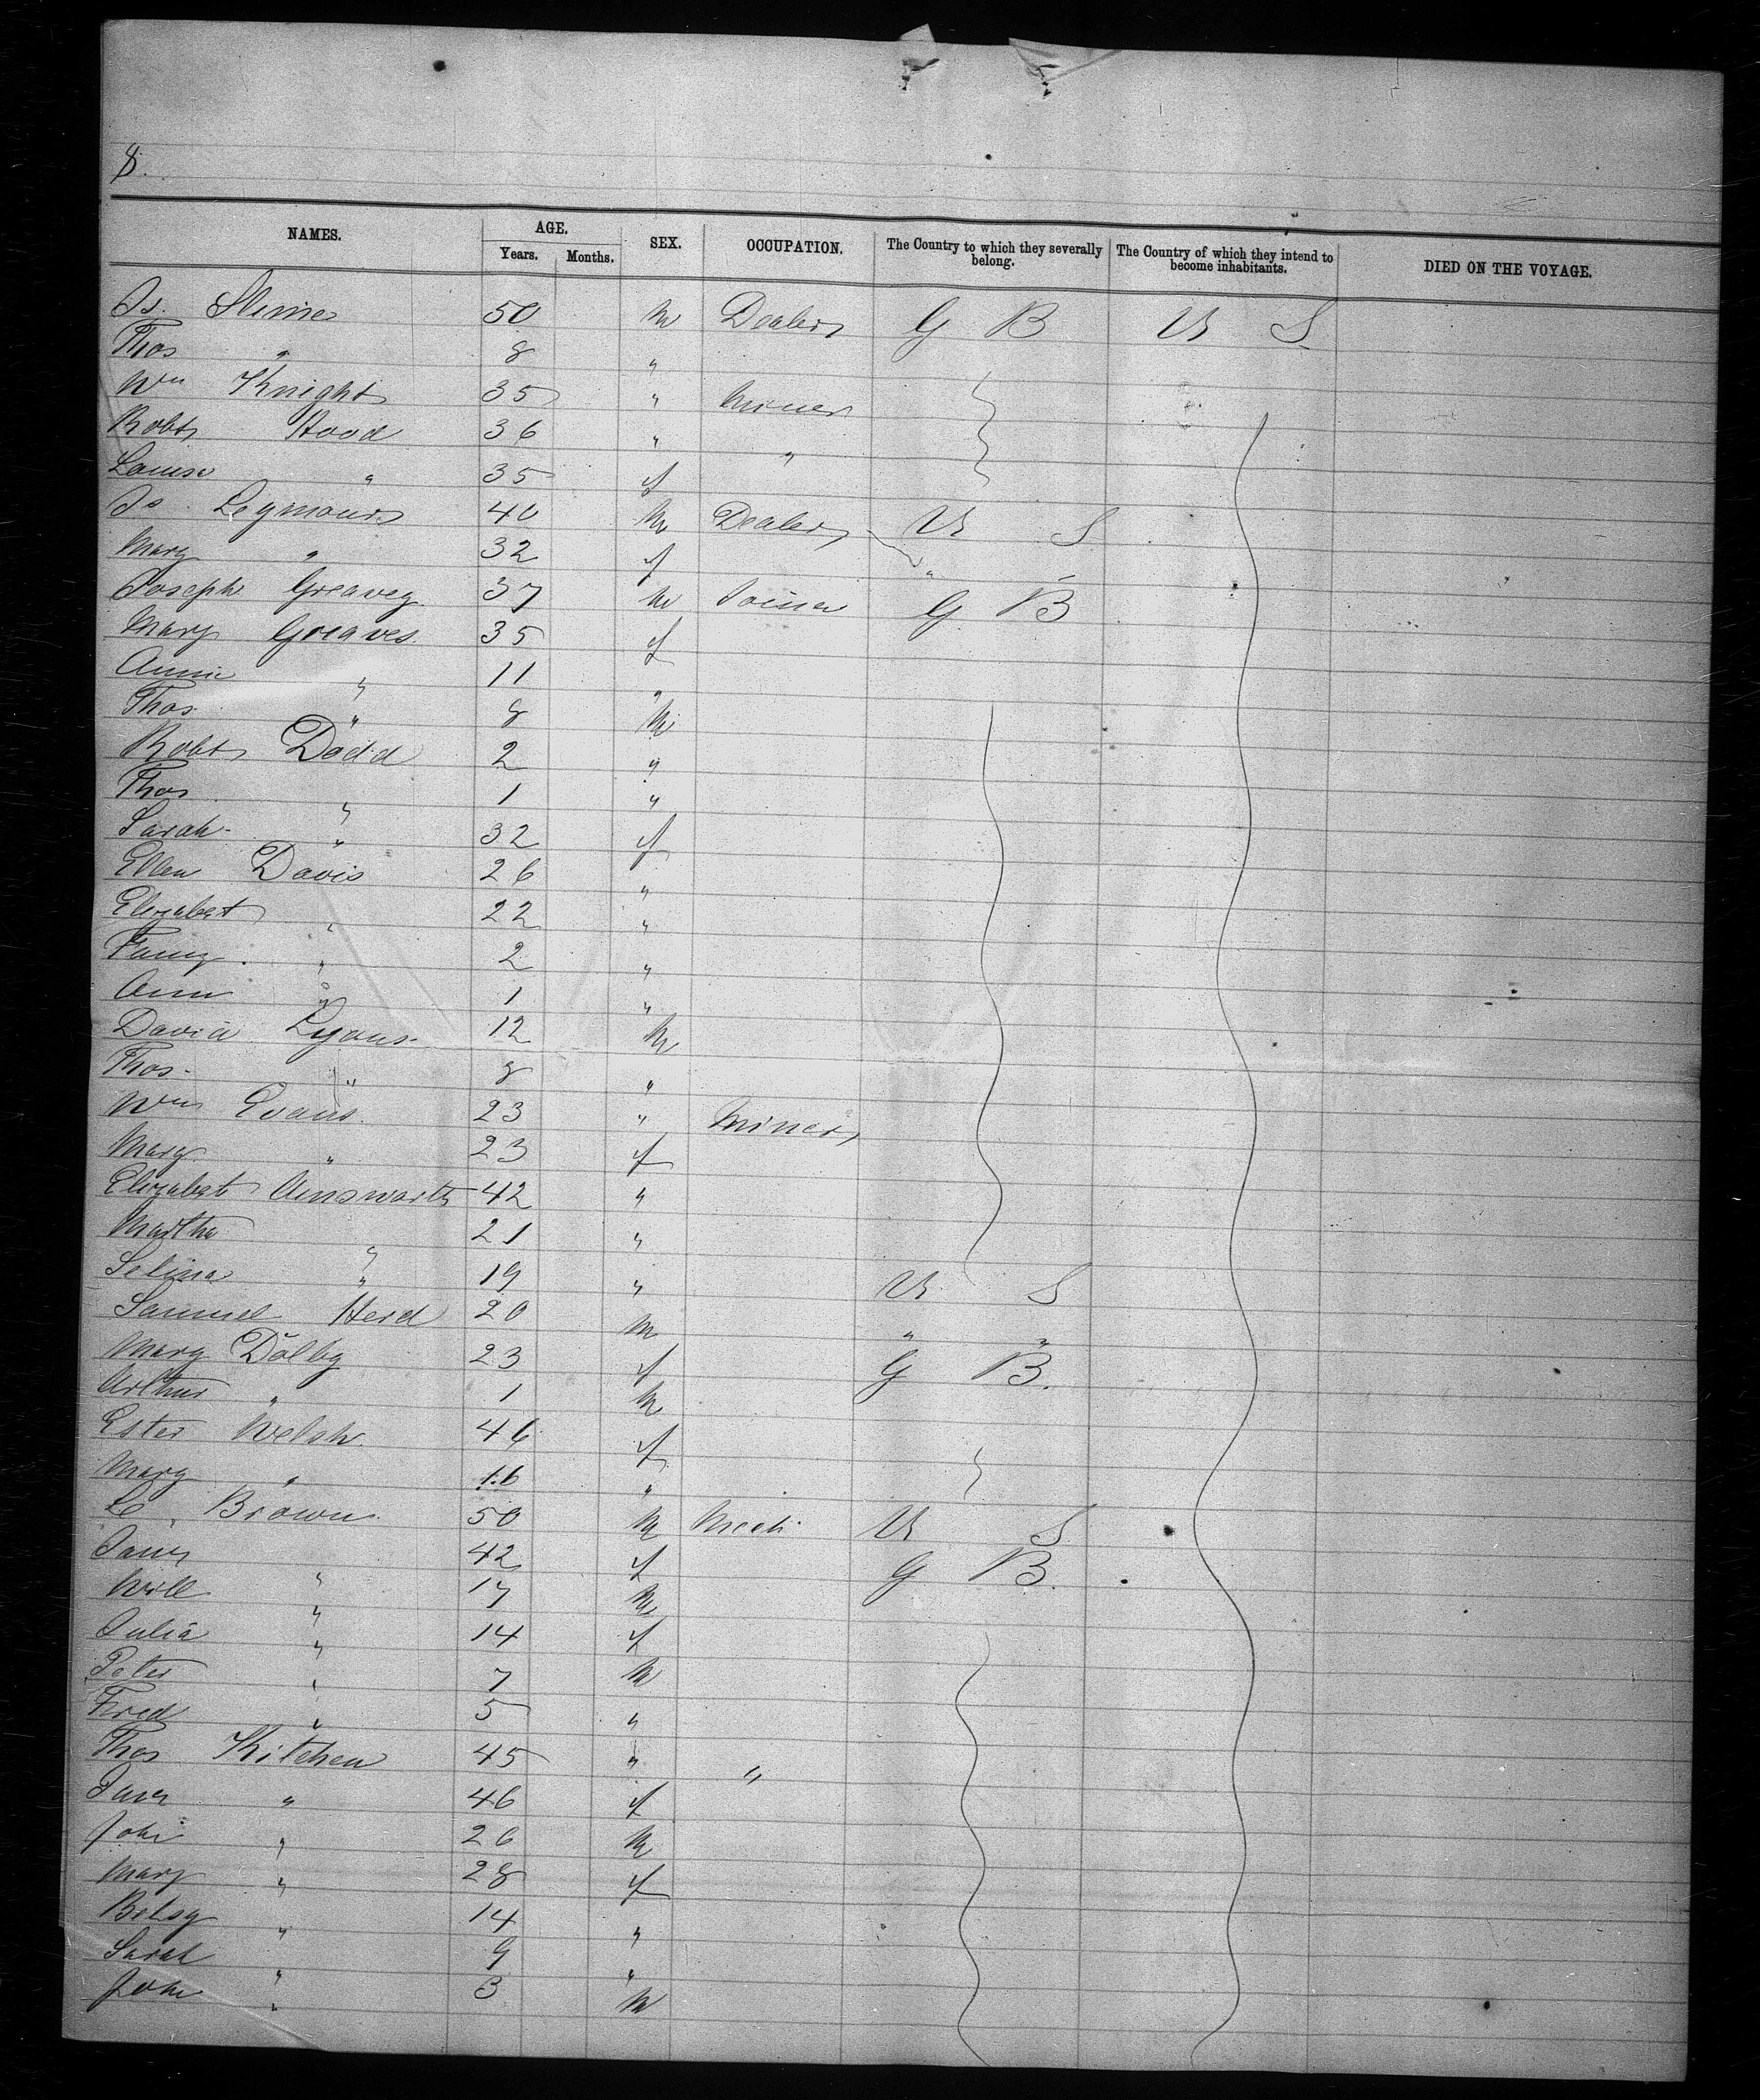 8.
NAMES. AGE. SEX. OCCUPATION. The Country to which they severally belong. The Country of which they intend to become inhabitants. DIED ON THE VOYAGE.
Years. Months.
Js. Slime 50 M Dealer G B U S
Thos " 8 "
Wm Knight 35 " Miner
Robt Hood 36 " "
Louisa " 35 f
Js. Seymour 40 M Dealer U S
Mary " 32 f " "
Joseph Greaves 37 M Joiner G B
Mary Greaves 35 f
Annie " 11 "
Thos " 8 M
Robt Dodd 2 "
Thos " 1 "
Sarah " 32 f
Ellen Davis 26 "
Elizabet " 22 "
Fanny " 2 "
Ann " 1 "
David Lyons 12 M
Thos " 8 "
Wm Evans 23 " Miner
Mary " 23 f
Elizabet Ainswarth 42 "
Martha " 21 "
Selina " 19 " U S
Samuel Herd 20 M " "
Mary Dolby 23 f G B.
Arthur " 1 M
Ester Welsh 46 f
Mary " 16 "
Brown 50 M Mech U S
Jane " 42 f G B.
Will " 17 M
Julia " 14 f
Peter " 7 M
Fred " 5 "
Thos Kitchen 45 " "
Jane " 46 f
John " 26 M
Mary " 28 f
Betsy " 14 "
Sarah " 9 "
John " 3 M